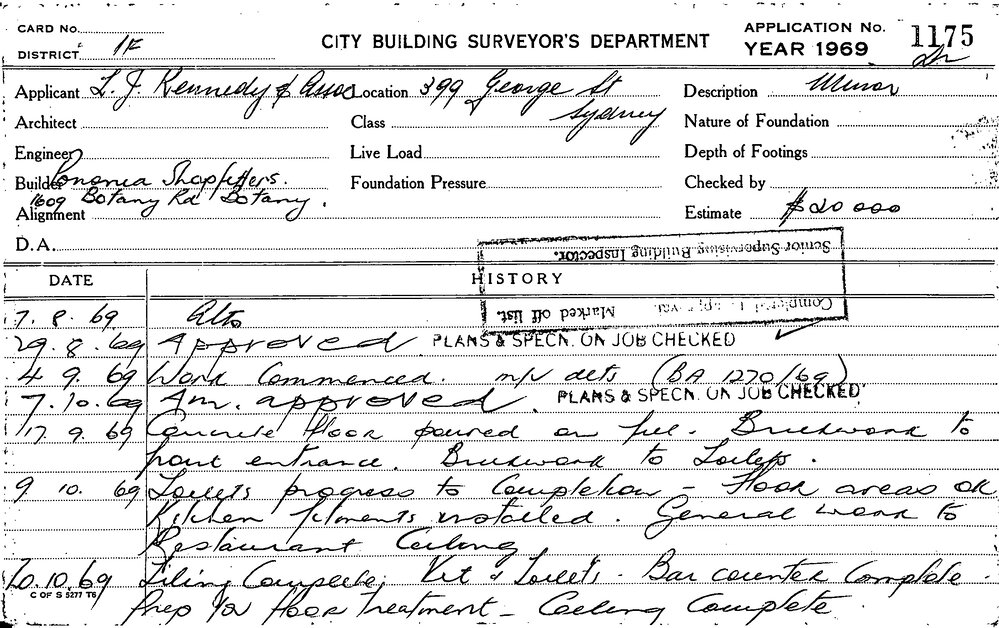 CARD No.
DISTRICT 1F
CITY BUILDING SURVEYOR'S DEPARTMENT
APPLICATION No. 1175
YEAR 1969
Applicant L. J. Kennedy & Assoc
Location 399 George St
Sydney
Description Minor
Architect
Class
Nature of Foundation
Engineer
Live Load
Depth of Footings
Builder Shopfitters.
1609 Botany Rd Botany.
Foundation Pressure
Checked by
Alignment
Estimate $20 000
D.A.
Senior Supervising Building Inspector.
Marked off list.
DATE
HISTORY
7. 8. 69 Alts
29. 8. 69 Approved PLANS & SPECN. ON JOB CHECKED
4 9. 69 Work Commenced. m/v alts (BA 1270/69)
7. 10. 69 Am. approved. PLANS & SPECN. ON JOB CHECKED
17 9. 69 Concrete floor poured on fill. Brickwork to
front entrance. Brickwork to Toilets.
9 10. 69 Toilets progress to Completion - Floor areas OK
Kitchen fitments installed. General work to
Restaurant Ceiling
20. 10. 69 Tiling Complete, Kit & Toilets. Bar counter Complete.
C OF S 5277 T6
Prep for floor treatment - Ceiling Complete.